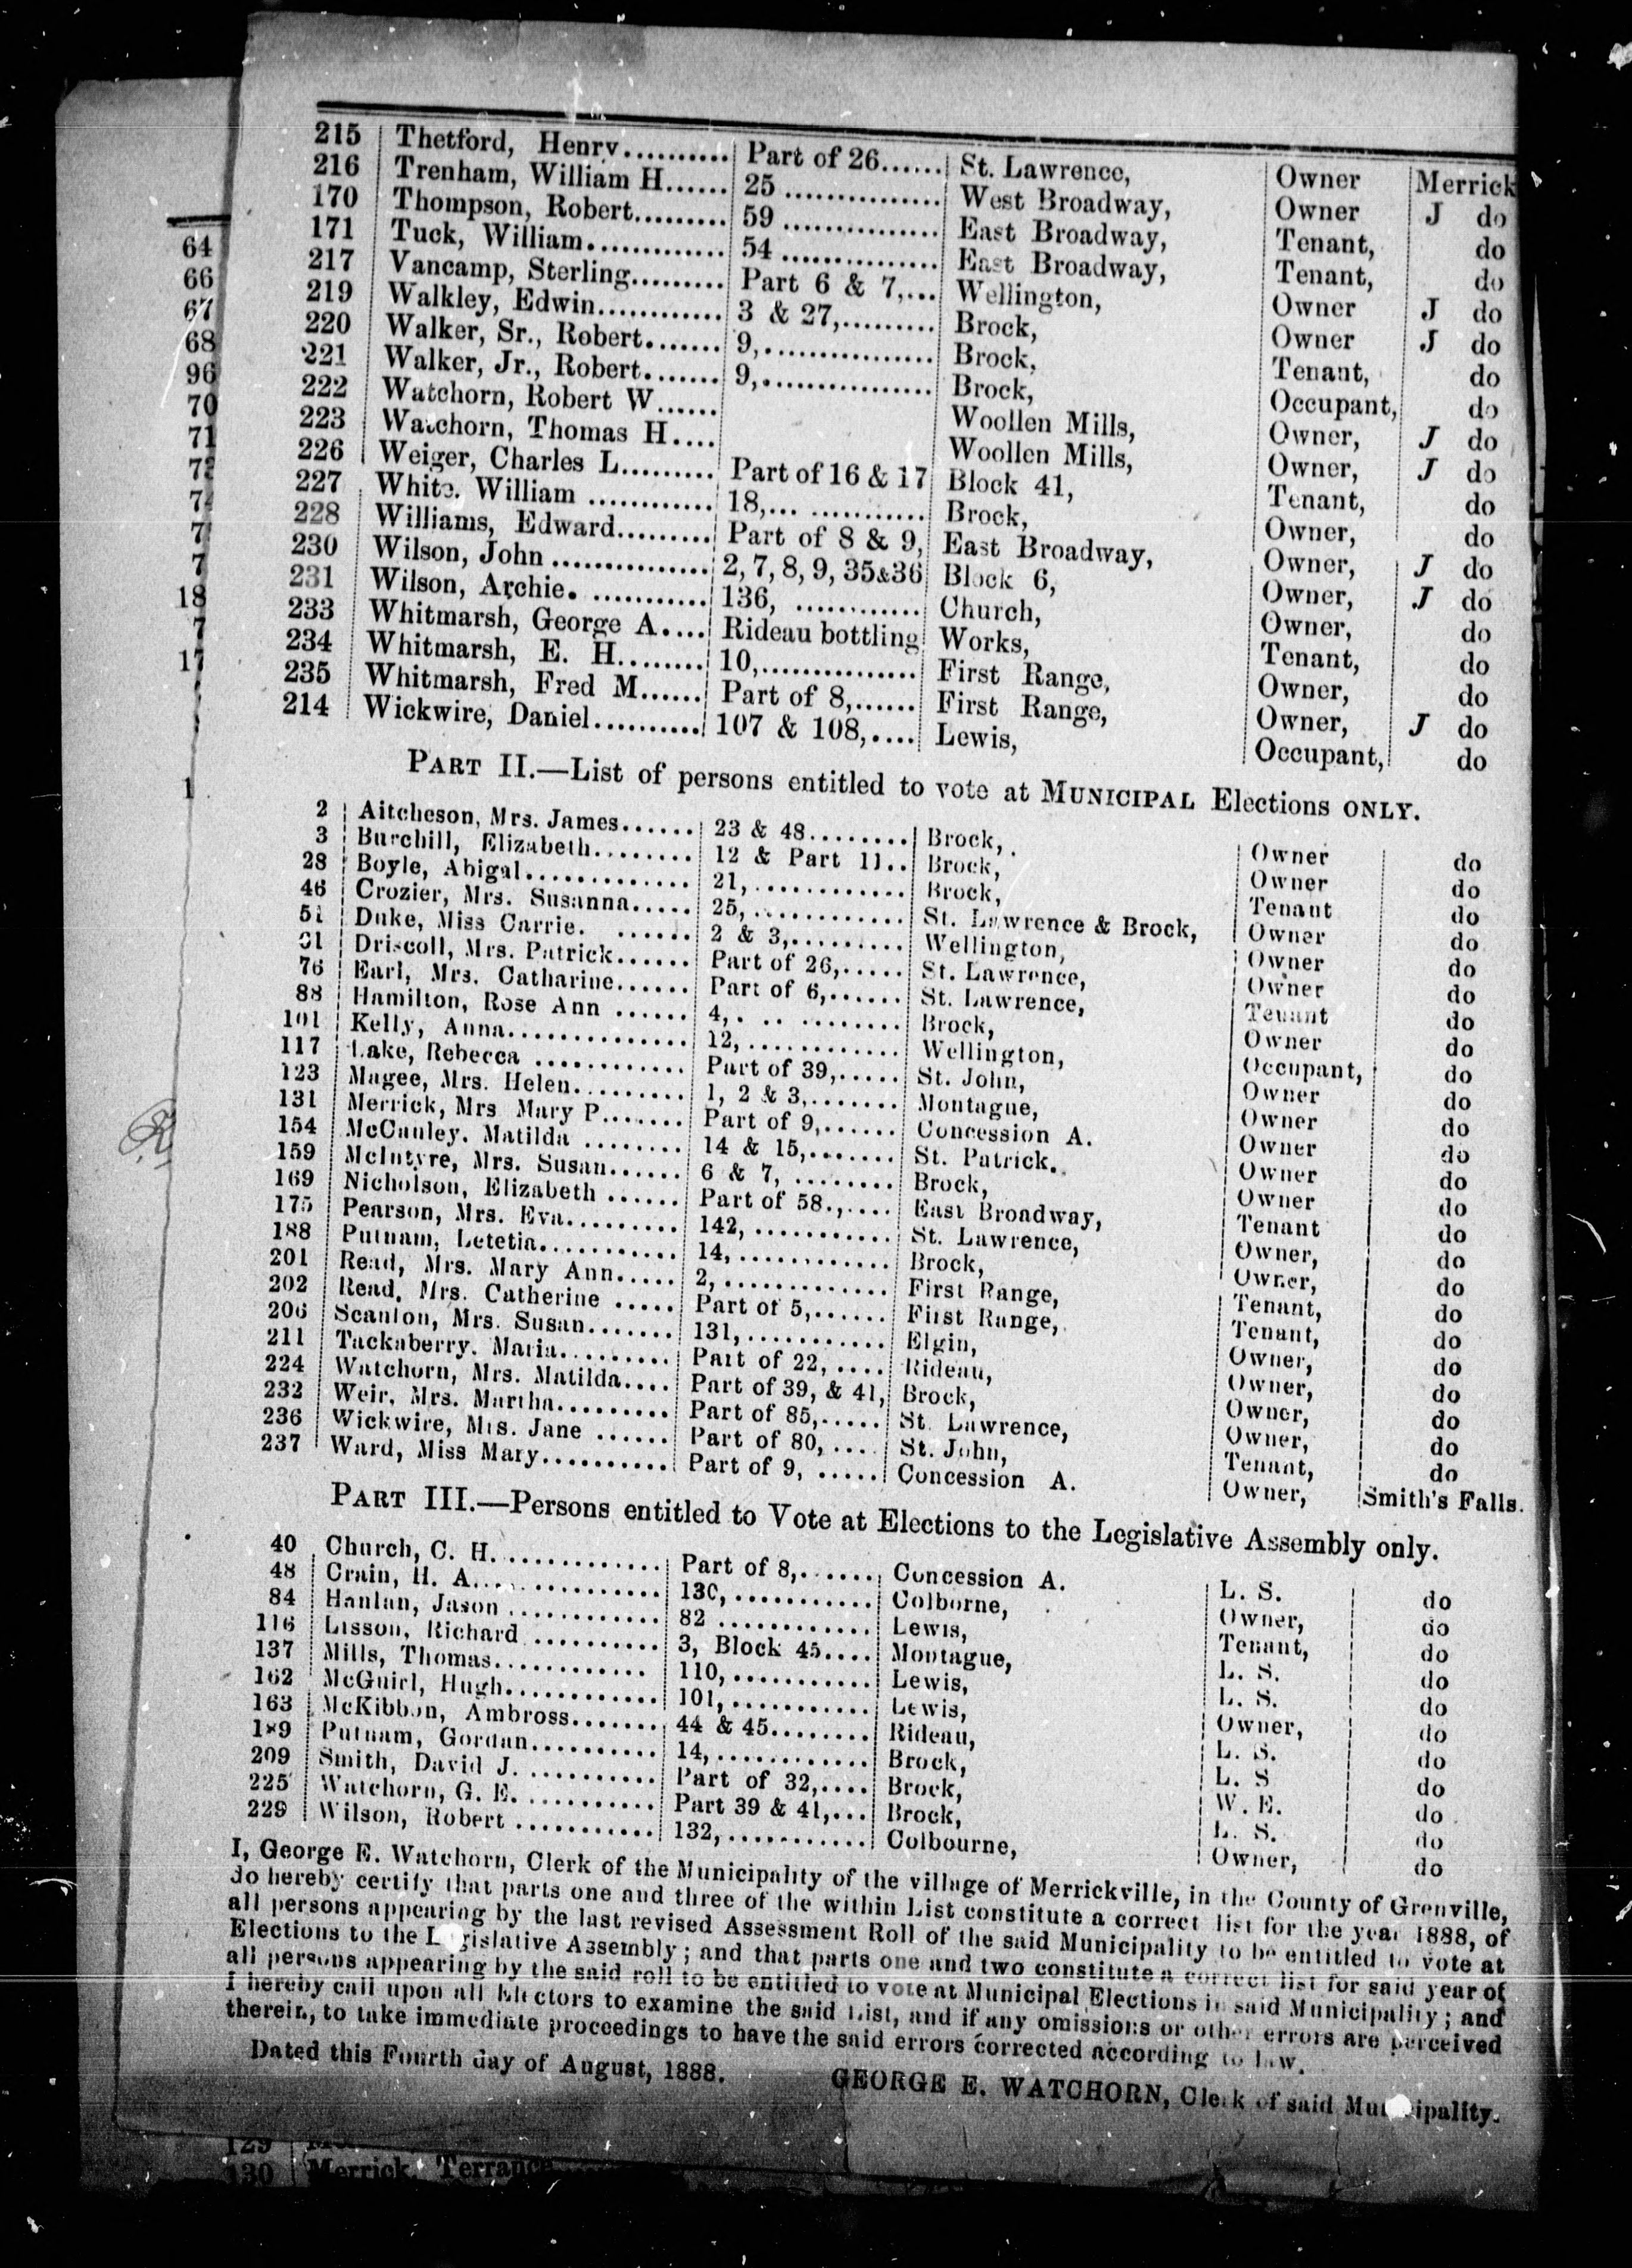 215 Thetford, Henry.......... Part of 26...... St. Lawrence, Owner Merrick
216 Trenham, William H...... 25 ............... West Broadway, Owner J do
170 Thompson, Robert......... 59 ............... East Broadway, Tenant, do
171 Tuck, William............. 54 ............... East Broadway, Tenant, do
217 Vancamp, Sterling......... Part 6 & 7,... Wellington, Owner J do
219 Walkley, Edwin............ 3 & 27,......... Brock, Owner J do
220 Walker, Sr., Robert....... 9,................ Brock, Tenant, do
221 Walker, Jr., Robert....... 9,................ Brock, Occupant, do
222 Watchorn, Robert W...... Woollen Mills, Owner, J do
223 Watchorn, Thomas H.... Woollen Mills, Owner, J do
226 Weiger, Charles L......... Part of 16 & 17 Block 41, Tenant, do
227 White. William ............ 18,... ........... Brock, Owner, do
228 Williams, Edward......... Part of 8 & 9, East Broadway, Owner, J do
230 Wilson, John ............... 2, 7, 8, 9, 35&36 Block 6, Owner, J do
231 Wilson, Archie. ........... 136, ............ Church, Owner, do
233 Whitmarsh, George A.... Rideau bottling Works, Tenant, do
234 Whitmarsh, E. H........ 10,............... First Range, Owner, do
235 Whitmarsh, Fred M...... Part of 8,...... First Range, Owner, J do
214 Wickwire, Daniel.......... 107 & 108,.... Lewis, Occupant, do
PART II.—List of persons entitled to vote at MUNICIPAL Elections ONLY.
2 Aitcheson, Mrs. James...... 23 & 48......... Brock, Owner do
3 Burchill, Elizabeth........ 12 & Part 11.. Brock, Owner do
28 Boyle, Abigal............. 21,............ Brock, Tenant do
46 Crozier, Mrs. Susanna..... 25,............ St. Lawrence & Brock, Owner do
Duke, Miss Carrie. ....... 2 & 3,......... Wellington, Owner do
Driscoll, Mrs. Patrick...... Part of 26,..... St. Lawrence, Owner do
76 Earl, Mrs. Catharine...... Part of 6,...... St. Lawrence, Tenant do
88 Hamilton, Rose Ann ...... 4,. .. ........ Brock, Owner do
101 Kelly, Anna.............. 12,............ Wellington, Occupant, do
117 Lake, Rebecca ............ Part of 39,..... St. John, Owner do
123 Magee, Mrs. Helen......... 1, 2 & 3,....... Montague, Owner do
131 Merrick, Mrs Mary P....... Part of 9,...... Concession A. Owner do
154 McCauley. Matilda ........ 14 & 15,....... St. Patrick.. Owner do
159 McIntyre, Mrs. Susan...... 6 & 7, ........ Brock, Owner do
169 Nicholson, Elizabeth ...... Part of 58.,.... East Broadway, Tenant do
175 Pearson, Mrs. Eva......... 142,............ St. Lawrence, Owner, do
188 Putnam, Letetia........... 14,............. Brock, Owner, do
201 Read, Mrs. Mary Ann..... 2,............. First Range, Tenant, do
202 Read, Mrs. Catherine ..... Part of 5,...... First Range, Tenant, do
206 Scanlon, Mrs. Susan....... 131,........... Elgin, Owner, do
211 Tackaberry. Maria......... Part of 22, .... Rideau, Owner, do
224 Watchorn, Mrs. Matilda.... Part of 39, & 41, Brock, Owner, do
232 Weir, Mrs. Martha......... Part of 85,..... St. Lawrence, Owner, do
236 Wickwire, Mrs. Jane ...... Part of 80, .... St. John, Tenant, do
237 Ward, Miss Mary.......... Part of 9, ..... Concession A. Owner, Smith's Falls.
PART III.—Persons entitled to Vote at Elections to the Legislative Assembly only.
40 Church, C. H............. Part of 8,...... Concession A. L. S. do
48 Crain, H. A............... 130,........... Colborne, Owner, do
84 Hanlan, Jason ............ 82 ............ Lewis, Tenant, do
116 Lisson, Richard .......... 3, Block 45.... Montague, L. S. do
137 Mills, Thomas............ 110,........... Lewis, L. S. do
162 McGuirl, Hugh............ 101,........... Lewis, Owner, do
163 McKibbon, Ambross....... 44 & 45........ Rideau, L. S. do
189 Putnam, Gordan.......... 14,............ Brock, L. S do
209 Smith, David J. .......... Part of 32,.... Brock, W. E. do
225 Watchorn, G. E. ........... Part 39 & 41,... Brock, L. S. do
229 Wilson, Robert ........... 132,........... Colbourne, Owner, do
I, George E. Watchorn, Clerk of the Municipality of the village of Merrickville, in the County of Grenville,
do hereby certify that parts one and three of the within List constitute a correct list for the year 1888, of
all persons appearing by the last revised Assessment Roll of the said Municipality to be entitled to vote at
Elections to the Legislative Assembly; and that parts one and two constitute a correct list for said year of
all persons appearing by the said roll to be entitled to vote at Municipal Elections in said Municipality; and
I hereby call upon all Electors to examine the said List, and if any omissions or other errors are perceived
therein, to take immediate proceedings to have the said errors corrected according to law.
Dated this Fourth day of August, 1888.
GEORGE E. WATCHORN, Clerk of said Municipality.
64
66
67
68
96
70
71
18
17
129
130 Merrick, Terrance